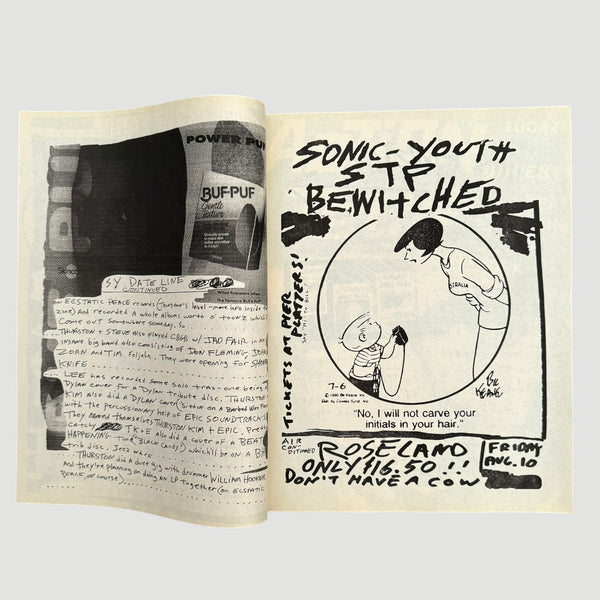 POWER PUF
BUF-PUF
Gentle
SY DATE LINE
CONTINUED
ON ECSTATIC PEACE records (Thurston's level - more info inside th
zue) and recorded a whole album worth o' toonz which
Come out somewhere someday. So
THURSTON + STEVE also played CBGB w/ JAD FAIR in an
insane big band also consisting of DON FLEMING, JOHN
ZORN and TIM Foljahn. They were opening for
KNIFE
LEE has recorded some solo trax - one being a
Dylan cover for a Dylan tribute disc. THURSTON
Kim also did a Dylan (Sitting on a Barbed Wire Fence
with the percussionary help of EPIC SOUNDTRACKS
They named themselves THURSTON KIM + EPIC. Pretty
catchy TK+E Also did a cover of a BEAT
HAPPENING trak ("BLACK CANDY") which'll be on a BH
trib disc. Jees
THURSTON did a duet gig with drummer WILLIAM HOOKER
And they're planning on doing an LP together (on ECSTATIC
PEACE, of course)
SONIC-YOUTH
STP
BEWITCHED
TICKETS AT PIER
PLATTERS!
STRALIA
7-6
BIL
KEANE
"No, I will not carve your
initials in your hair."
AIR
CON-
DITIONED
ROSELAND
ONLY $16.50!!
DON'T HAVE A COW
FRIDAY
AUG. 10